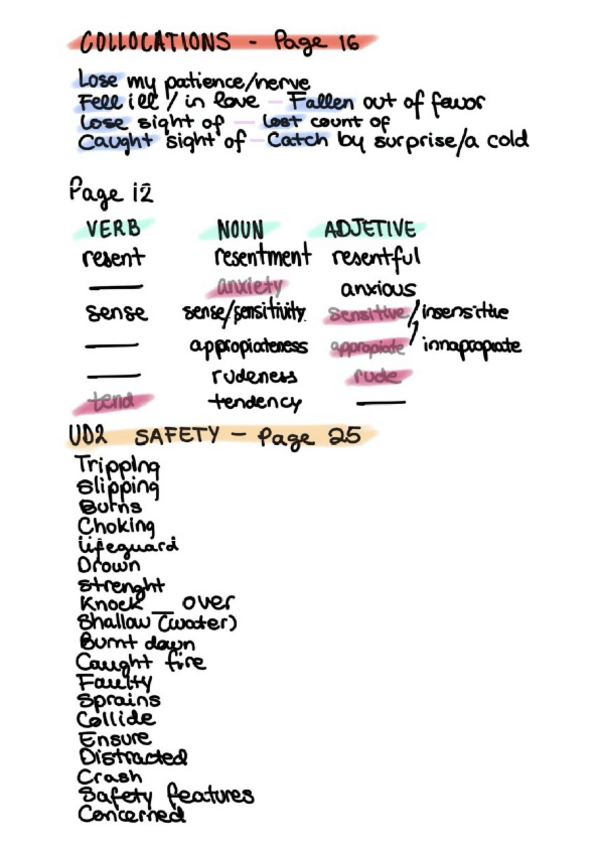 COLLOCATIONS - Page 16
Lose my patience/nerve
Fell ill / in love - Fallen out of favor
Lose sight of - Lost count of
Caught sight of - Catch by surprise/a cold
Page 12
VERB NOUN ADJETIVE
resent resentment resentful
— anxiety anxious
sense sense/sensitivity sensitive/insensitive
— appropiateness appropiate/innapropiate
— rudeness rude
tend tendency —
UD2 SAFETY - Page 25
Tripping
Slipping
Burns
Choking
Lifeguard
Drown
Strenght
Knock _ over
Shallow (water)
Burnt down
Caught fire
Faulty
Sprains
Collide
Ensure
Distracted
Crash
Safety features
Concerned